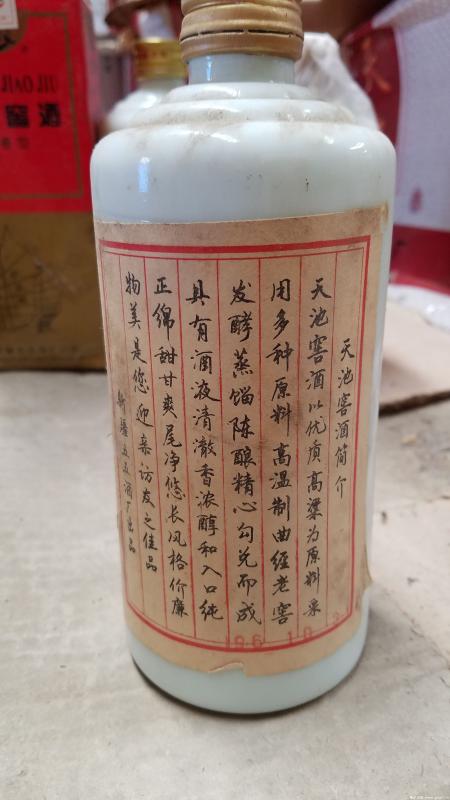 天池窖酒简介
天池窖酒以优质高粱为原料采
用多种原料高温制曲经老窖
发酵蒸馏陈酿精心勾兑而成
具有酒液清澈香浓醇和入口纯
正绵甜甘爽尾净悠长风格价廉
物美是您迎亲访友之佳品
新疆五五酒厂出品
JIAO JIU
窖酒